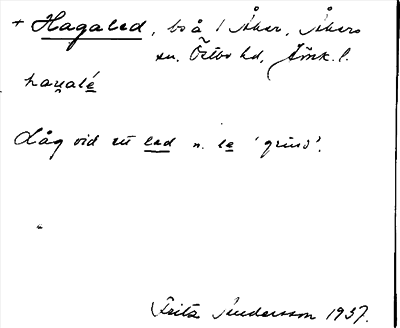 + Hagaled, bo å 1 Åker, Åkers
sn. Östbo hd, Jönk. l.
haualé
Låg vid ett led n. le 'grind'.
Frits Andersson 1937.